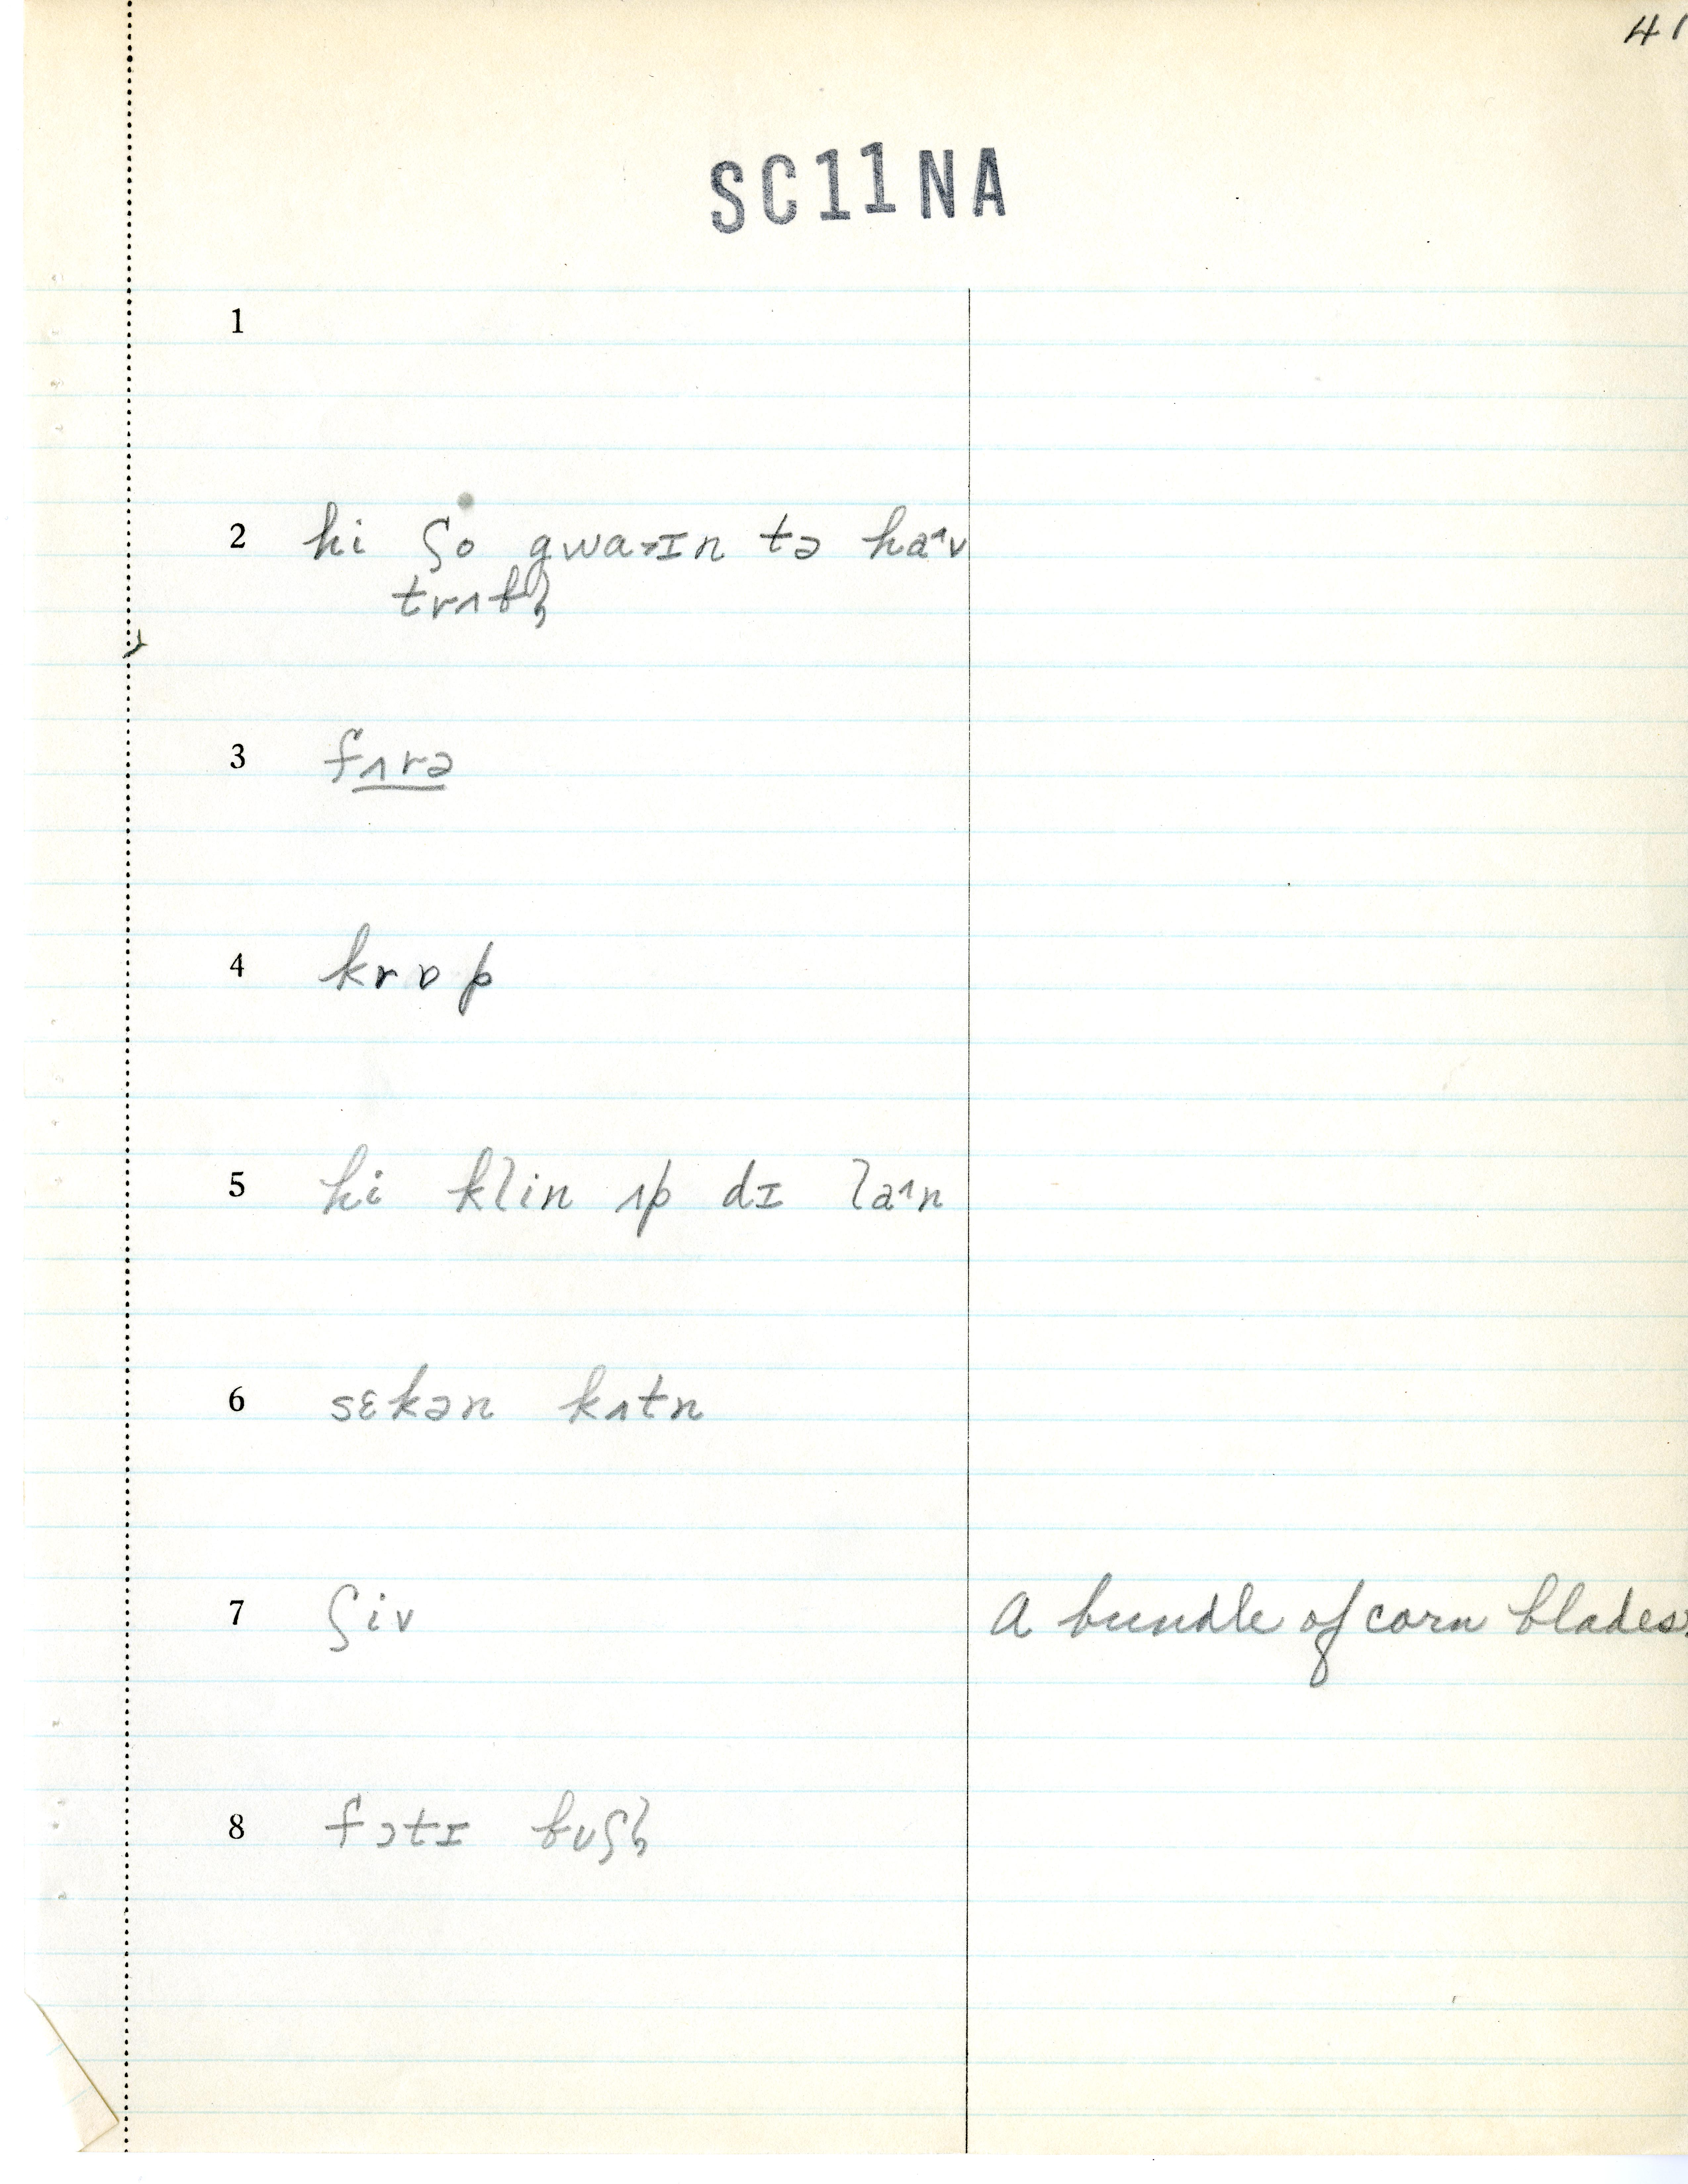 41
SC11NA
1
2 hi ʃo gwa˃ɪn tə ha˄v
trʌbl̩
3 fʌrə
4 krɒp
5 hi klin ʌp dɪ la˄n
6 sɛkən kʌtn
7 ʃiv A bundle of corn blades.
8 fɔtɪ buʃl̩